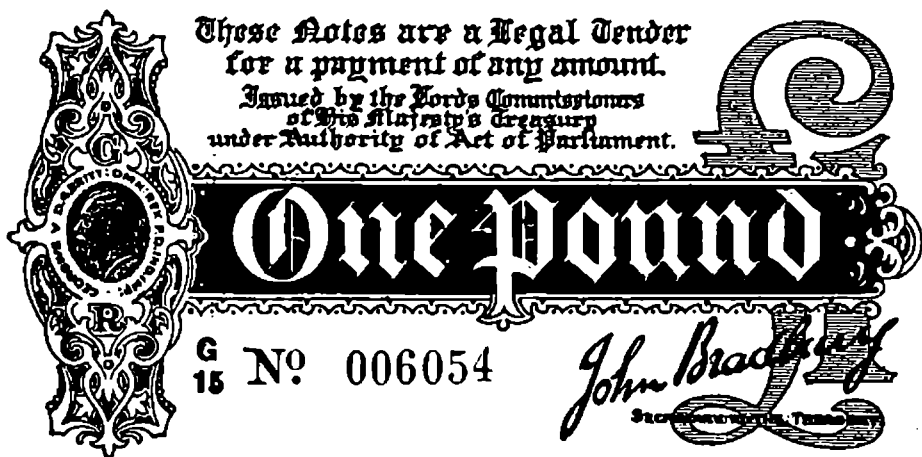 These Notes are a Legal Tender
for a payment of any amount.
Issued by the Lords Commissioners
of His Majesty's Treasury
under Authority of Act of Parliament.
£
G
One Pound
R
G
15 Nº 006054
John Bradbury
SECRETARY TO THE TREASURY
£1